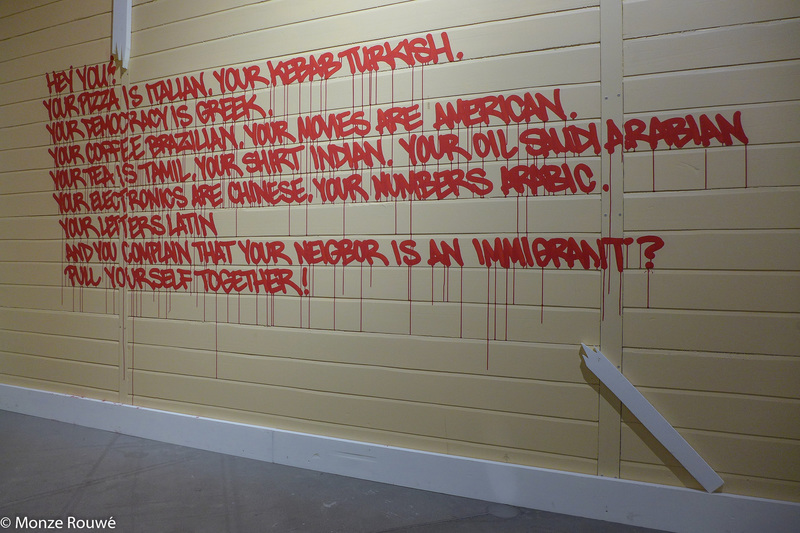 HEY YOU!
YOUR PIZZA IS ITALIAN. YOUR KEBAB TURKISH.
YOUR DEMOCRACY IS GREEK.
YOUR COFFEE BRAZILIAN. YOUR MOVIES ARE AMERICAN.
YOUR TEA IS TAMIL. YOUR SHIRT INDIAN. YOUR OIL SAUDI ARABIAN
YOUR ELECTRONICS ARE CHINESE. YOUR NUMBERS ARABIC.
YOUR LETTERS LATIN
AND YOU COMPLAIN THAT YOUR NEIGBOR IS AN IMMIGRANT?
PULL YOURSELF TOGETHER!
© Monze Rouwé